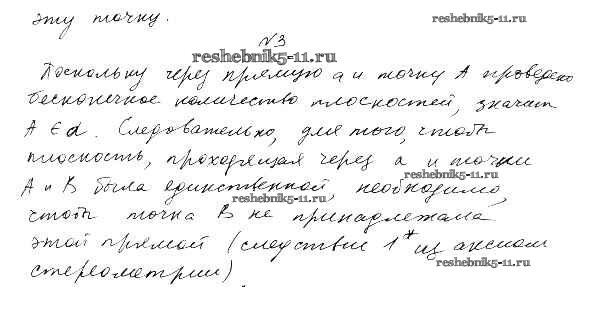 эту точку.
reshebnik5-11.ru
№3
reshebnik5-11.ru
Поскольку через прямую a и точку A проведено
бесконечное количество плоскостей, значит
A ∈ d. Следовательно, для того, чтобы
плоскость, проходящая через a и точки
reshebnik5-11.ru
A и B была единственной, необходимо,
reshebnik5-11.ru
чтобы точка B не принадлежала
этой прямой (следствие 1* из аксиом
reshebnik5-11.ru
стереометрии).